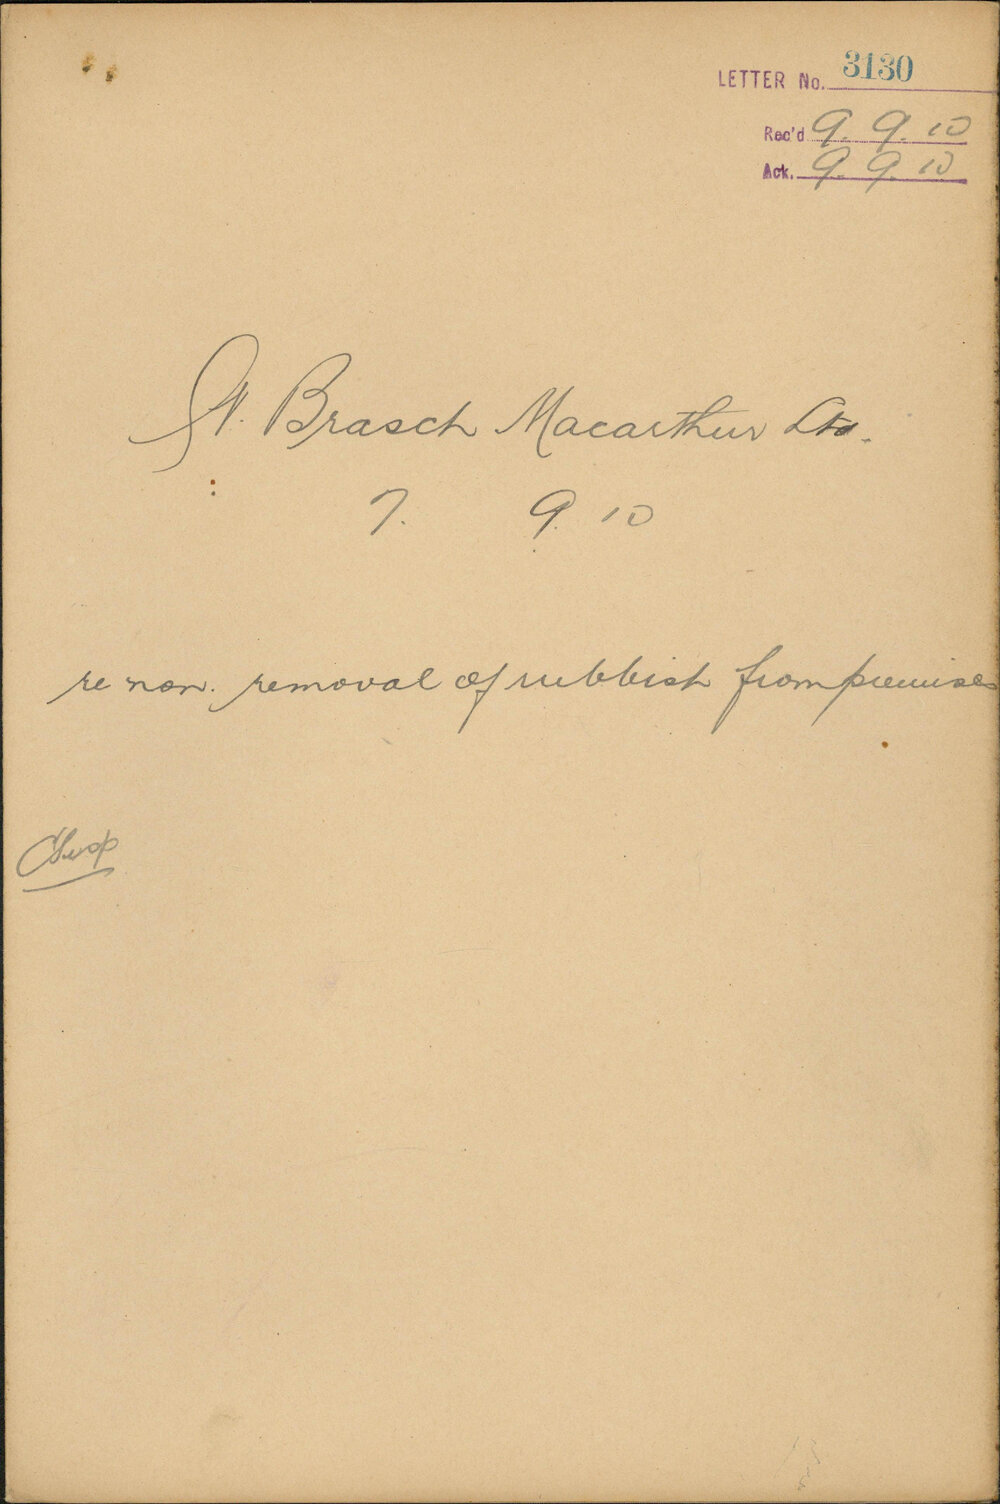 LETTER No. 3130
Rec'd 9. 9. 10
Ack. 9. 9. 10
Brasch Macarthur Ltd.
7. 9. 10
re non. removal of rubbish from premises